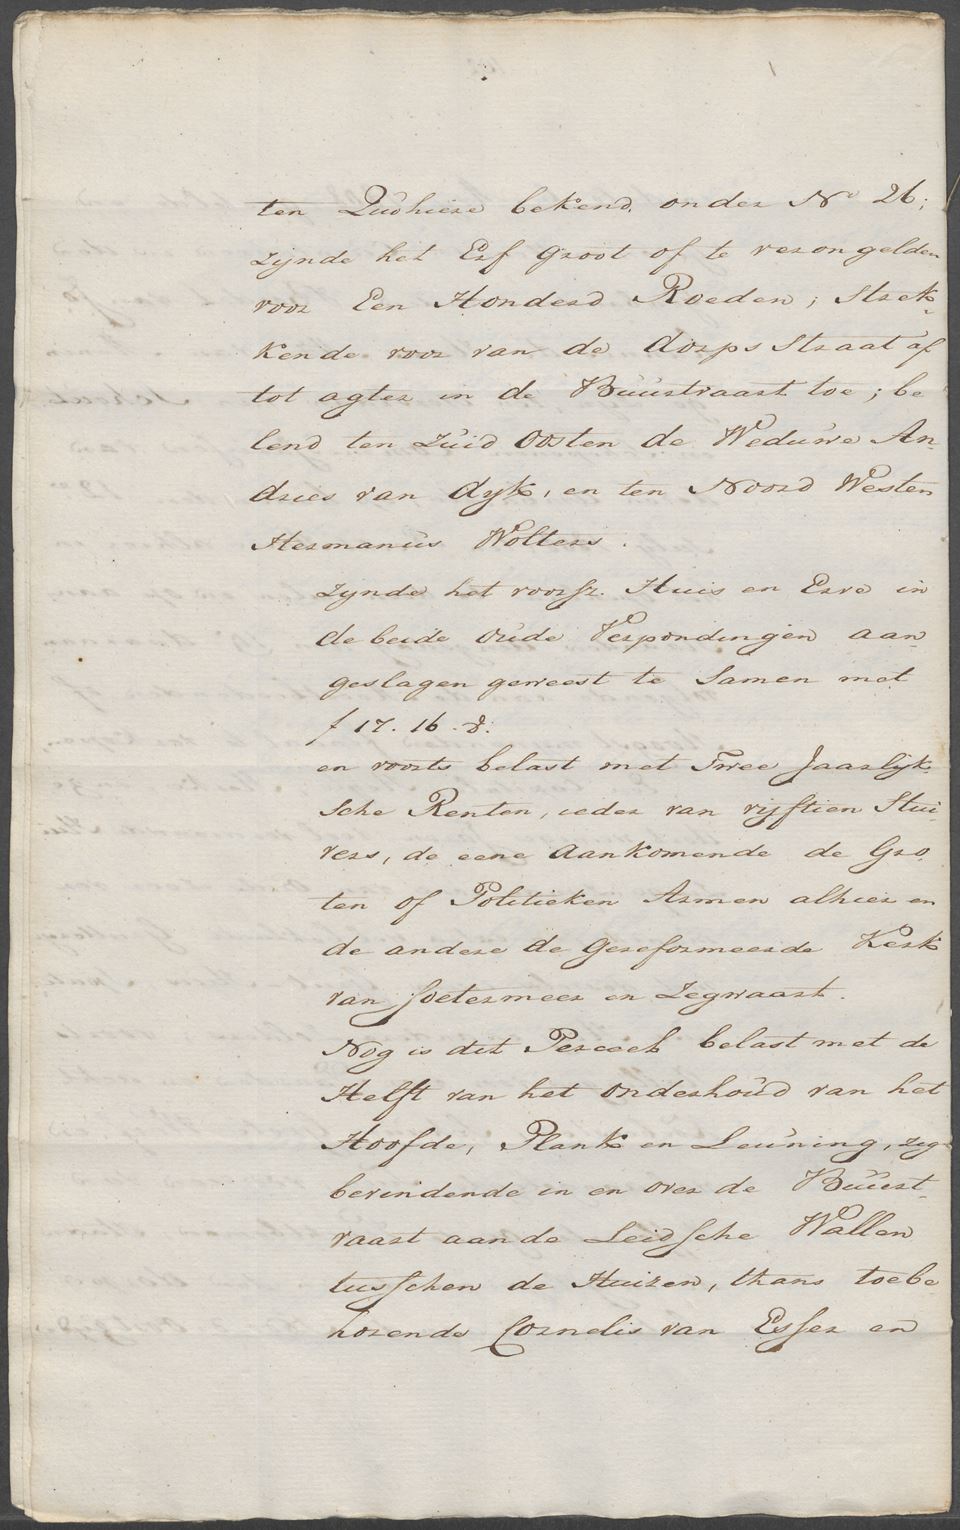 ten Quohiere bekend onder No 26;
zynde het Erf Groot of te verongelden
voor Een Honderd Roeden; Strek-
kende voor van de dorps Straat af
tot agter in de Buurtvaart toe; be
lend ten Zuid Oosten de Weduwe An-
dries van dyk, en ten Noord Westen
Hermanus Wolters.
zynde het voorsz. Huis en Erve in
de beide oude Verpondingen aan
geslagen geweest te Samen met
f 17. 16. 8.
en voorts belast met Twee Jaarlyk
sche Renten, ieder van vyftien Stui-
vers, de eene aankomende de Gro
ten of Politieken Armen alhier en
de andere de Gereformeerde Kerk
van Soetermeer en Zegwaart.
Nog is dit Perceel belast met de
Helft van het onderhoud van het
Hoofde, Plank en Leuning, zig
bevindende in en over de Buurt-
vaart aan de Leidsche Wallen
tusschen de Huizen, thans toebe
horende Cornelis van Esser en